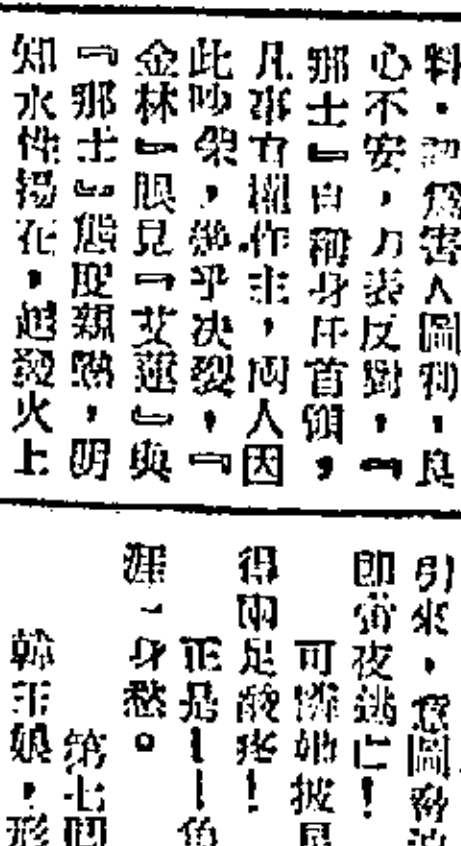 料,認爲害人圖利,良
心不安,力表反對,『
那士』自稱身旣首領,
凡事有權作主,兩人因
此吵架,幾乎決裂,『
金林』眼見『艾蓮』與
『那士』態度親熱,明
知水性揚花,越發火上
引來,意圖脅迫
即宵夜逃亡!
可憐她披星
得兩足酸疼!
正是——角
涯一身愁。
第七回
韓玉娘,形